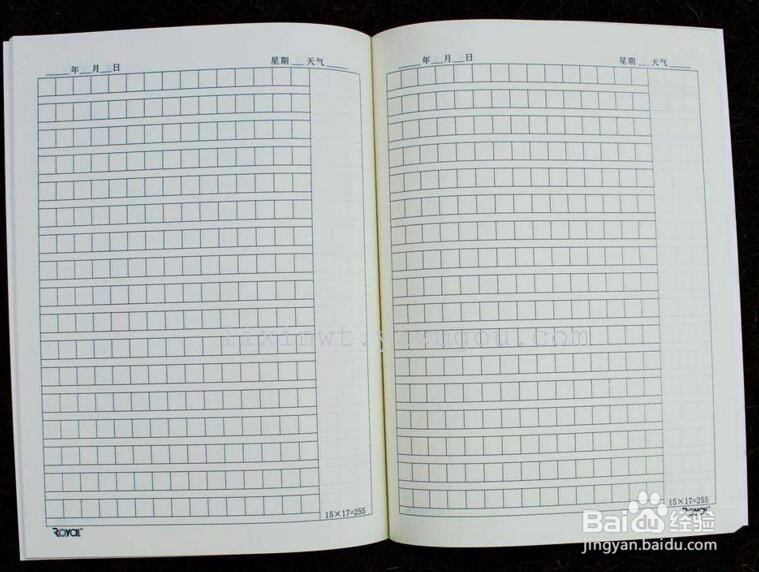 ____年__月__日 星期__天气____
____年__月__日 星期__天气____
lixinwt.yiwugou.com
15×17=255
15×17=255
ROYAL
ROYAL
Baidu经验
jingyan.baidu.com